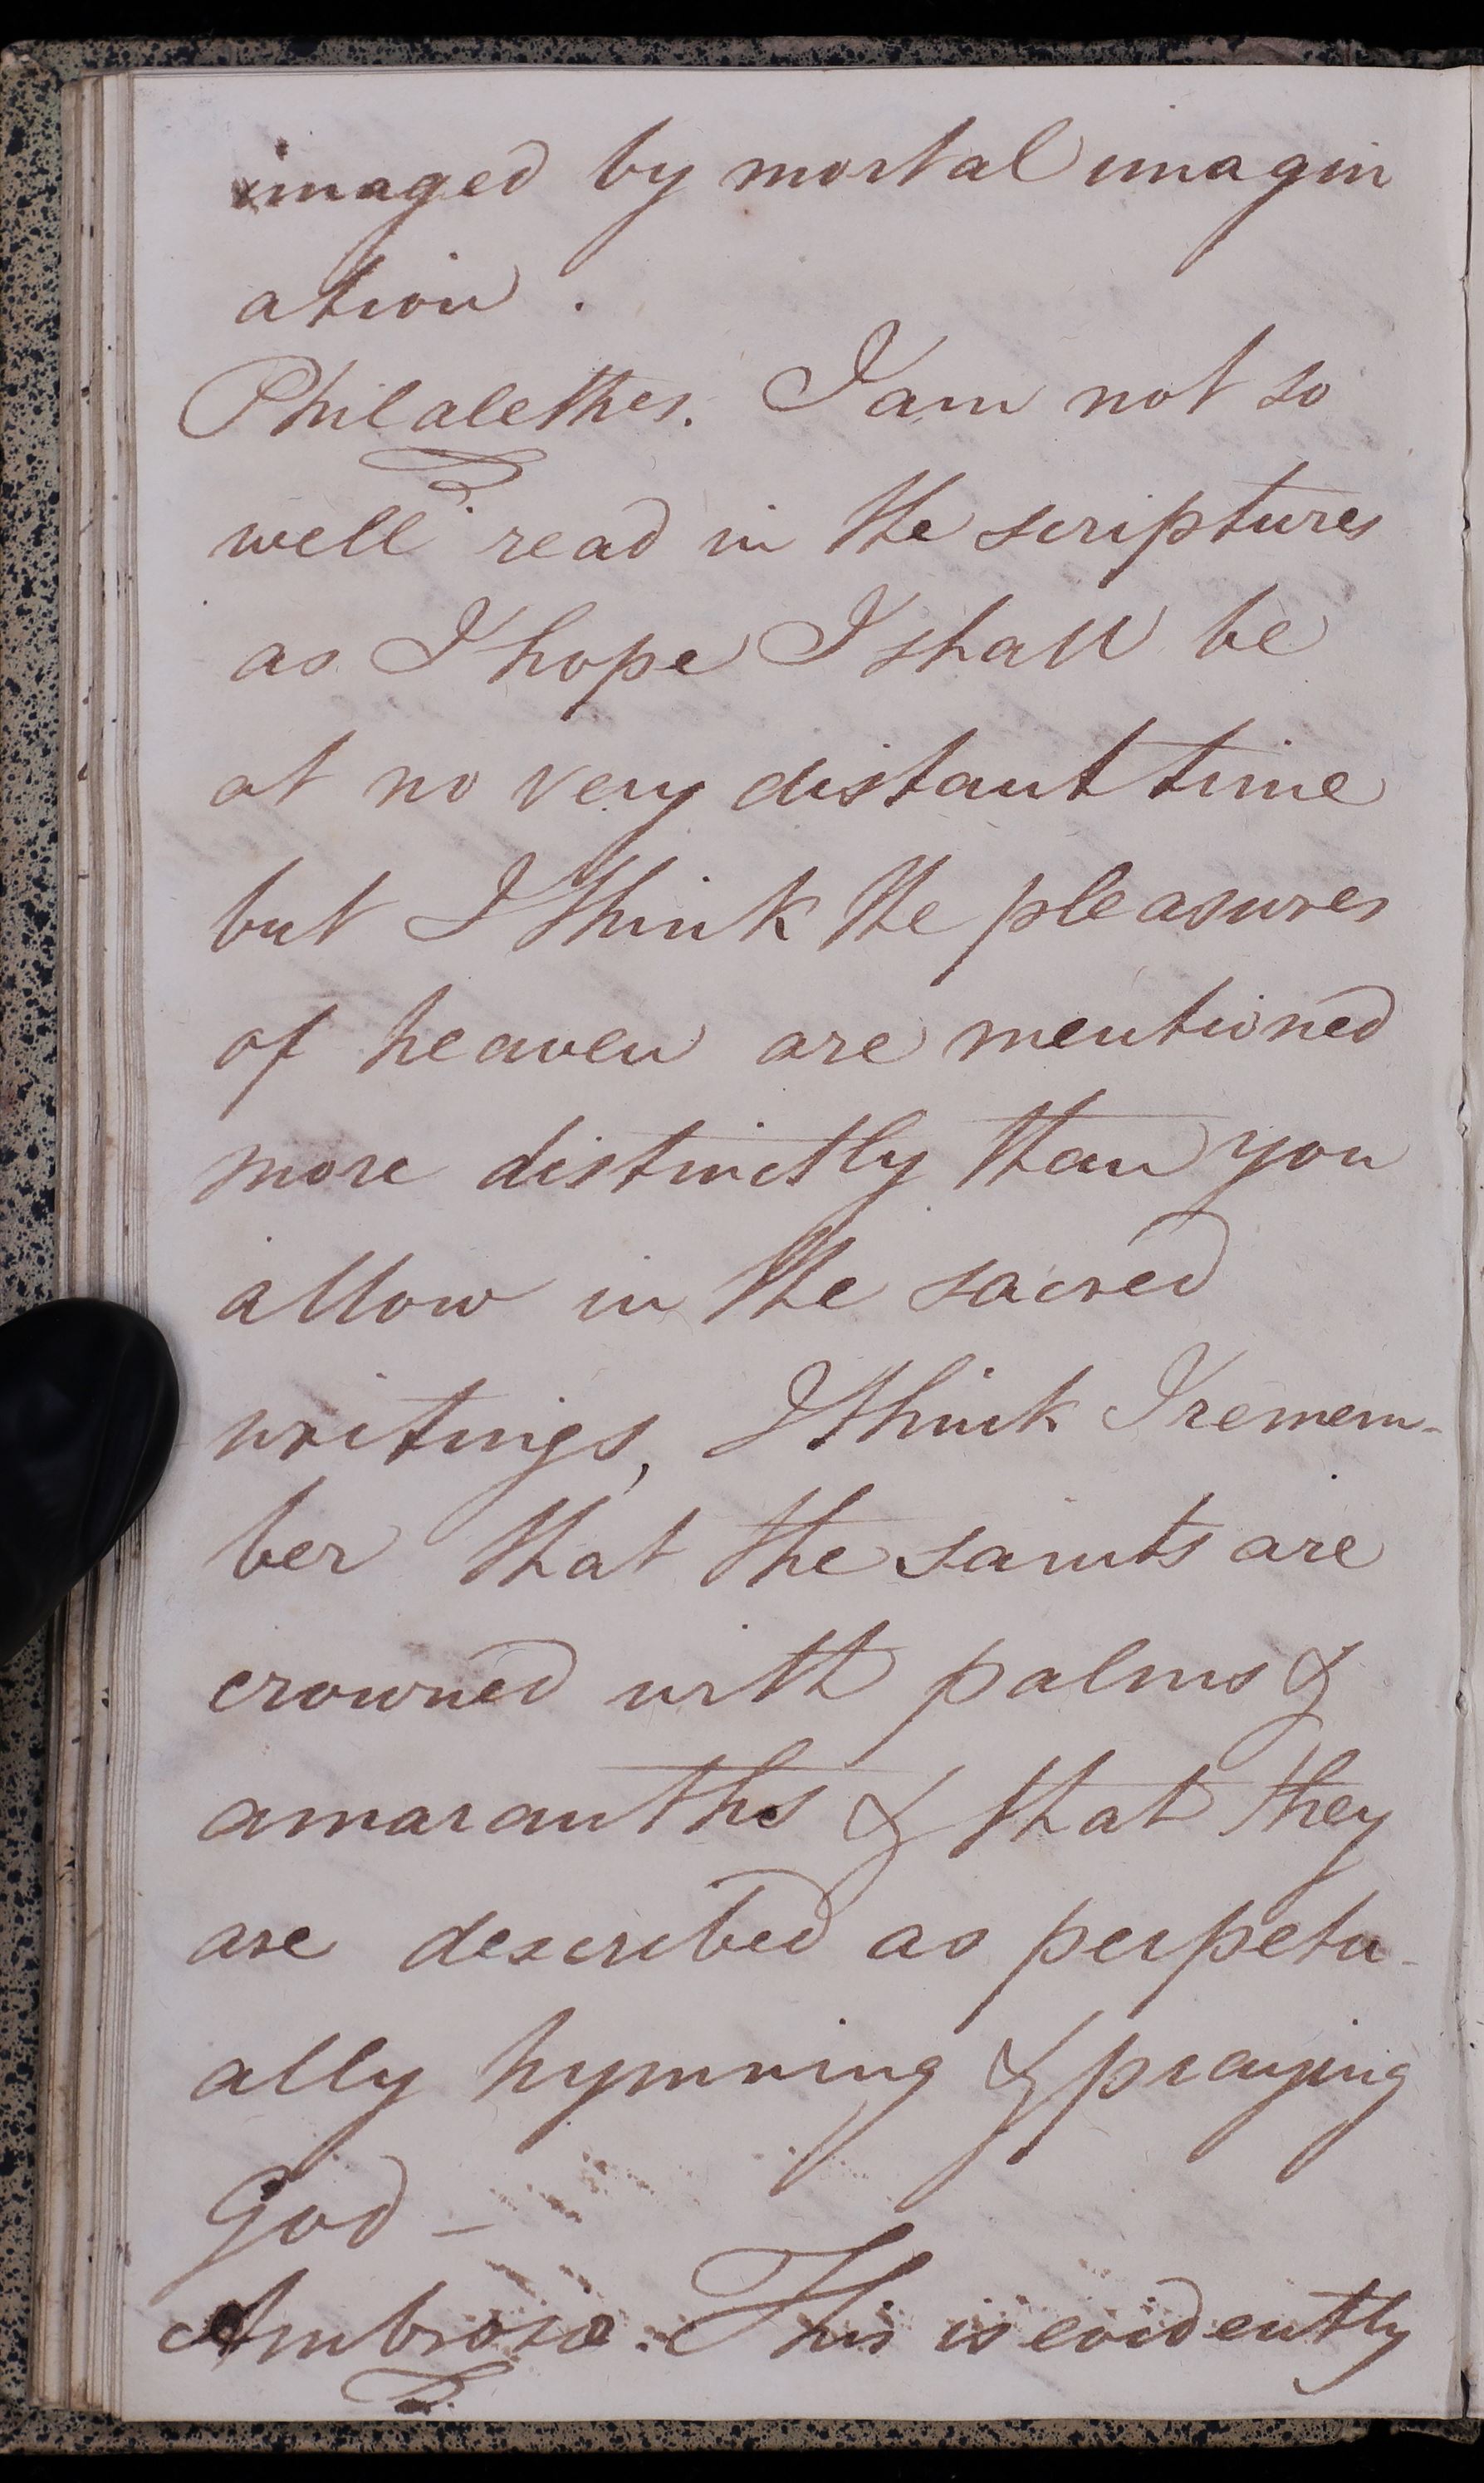 imaged by mortal imagin
ation .
Philalethes. I am not so
well read in the scriptures
as I hope I shall be
at no very distant time
but I think the pleasures
of heaven are mentioned
more distinctly than you
allow in the sacred
writings, I think I remem-
ber that the saints are
crowned with palms &
amaranths & that they
are described as perpetu-
ally hymning & praying
God -
Ambrosio. This is evidently